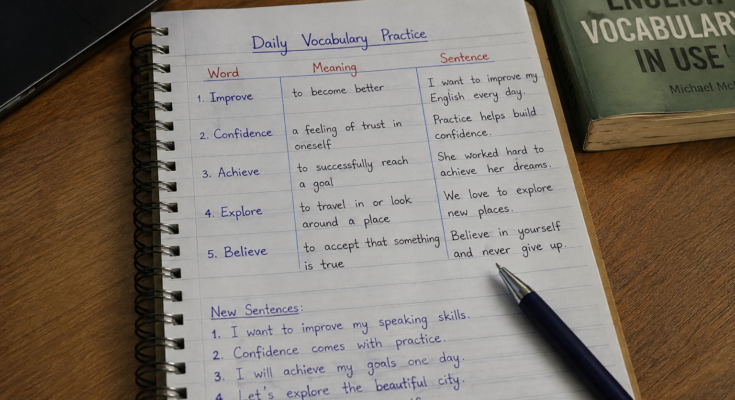 Daily Vocabulary Practice
Word Meaning Sentence
1. Improve to become better I want to improve my
English every day.
2. Confidence a feeling of trust in Practice helps build
oneself confidence.
3. Achieve to successfully reach She worked hard to
a goal achieve her dreams.
4. Explore to travel in or look We love to explore
around a place new places.
5. Believe to accept that something Believe in yourself
is true and never give up.
New Sentences:
1. I want to improve my speaking skills.
2. Confidence comes with practice.
3. I will achieve my goals one day.
4. Let's explore the beautiful city.
ENGLISH
VOCABULARY
IN USE
Michael